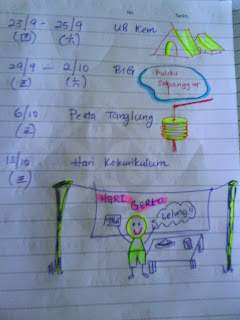 No. Tarikh:
23/9 - 25/9 UB Kem
(四) (六)
29/9 - 2/10 BIG
(三) (六)
Pulau
Sepanggar
6/10 Pesta Tanglung
(三)
13/10 Hari Kokurikulum
(三)
HARI GERKO
Lelong!!